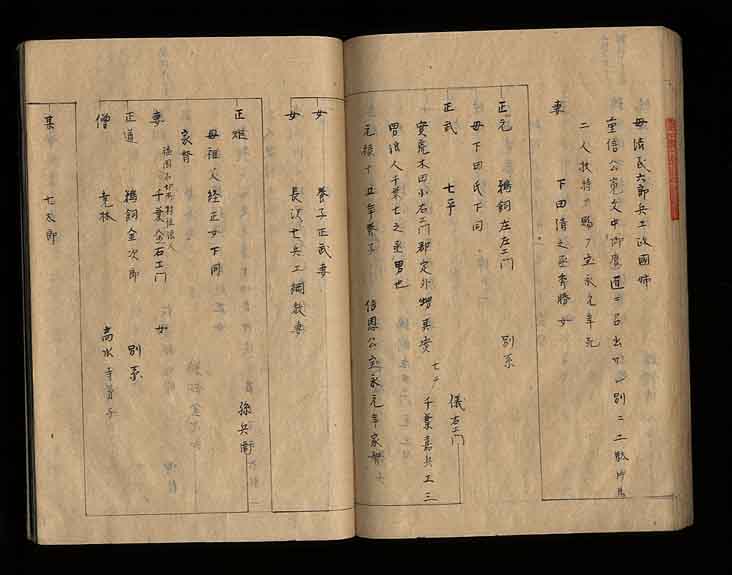 母清氏六郎兵エ政國姉
重信公寛文中御鷹道ニ召出サレ別ニ二駄
二人扶持ヲ賜フ宝永元年死
妻 下田清之丞秀勝女
正元 鵜飼左左エ門 別系
母下田氏下同
正武 七平 儀右エ門
實荒木田小右エ門郡定外甥 千葉嘉兵エ三
男浪人千葉七之丞男也
元禄十五年養子 信恩公宝永元年家督
女 養子正武妻
女 長沢七兵エ綱教妻
正 孫兵衛
母祖父経正女下同
家督
妻 浪人千葉金右エ門女
正道 鵜飼金次郎 別系
僧 尭林 高水寺弟子
某 七太郎